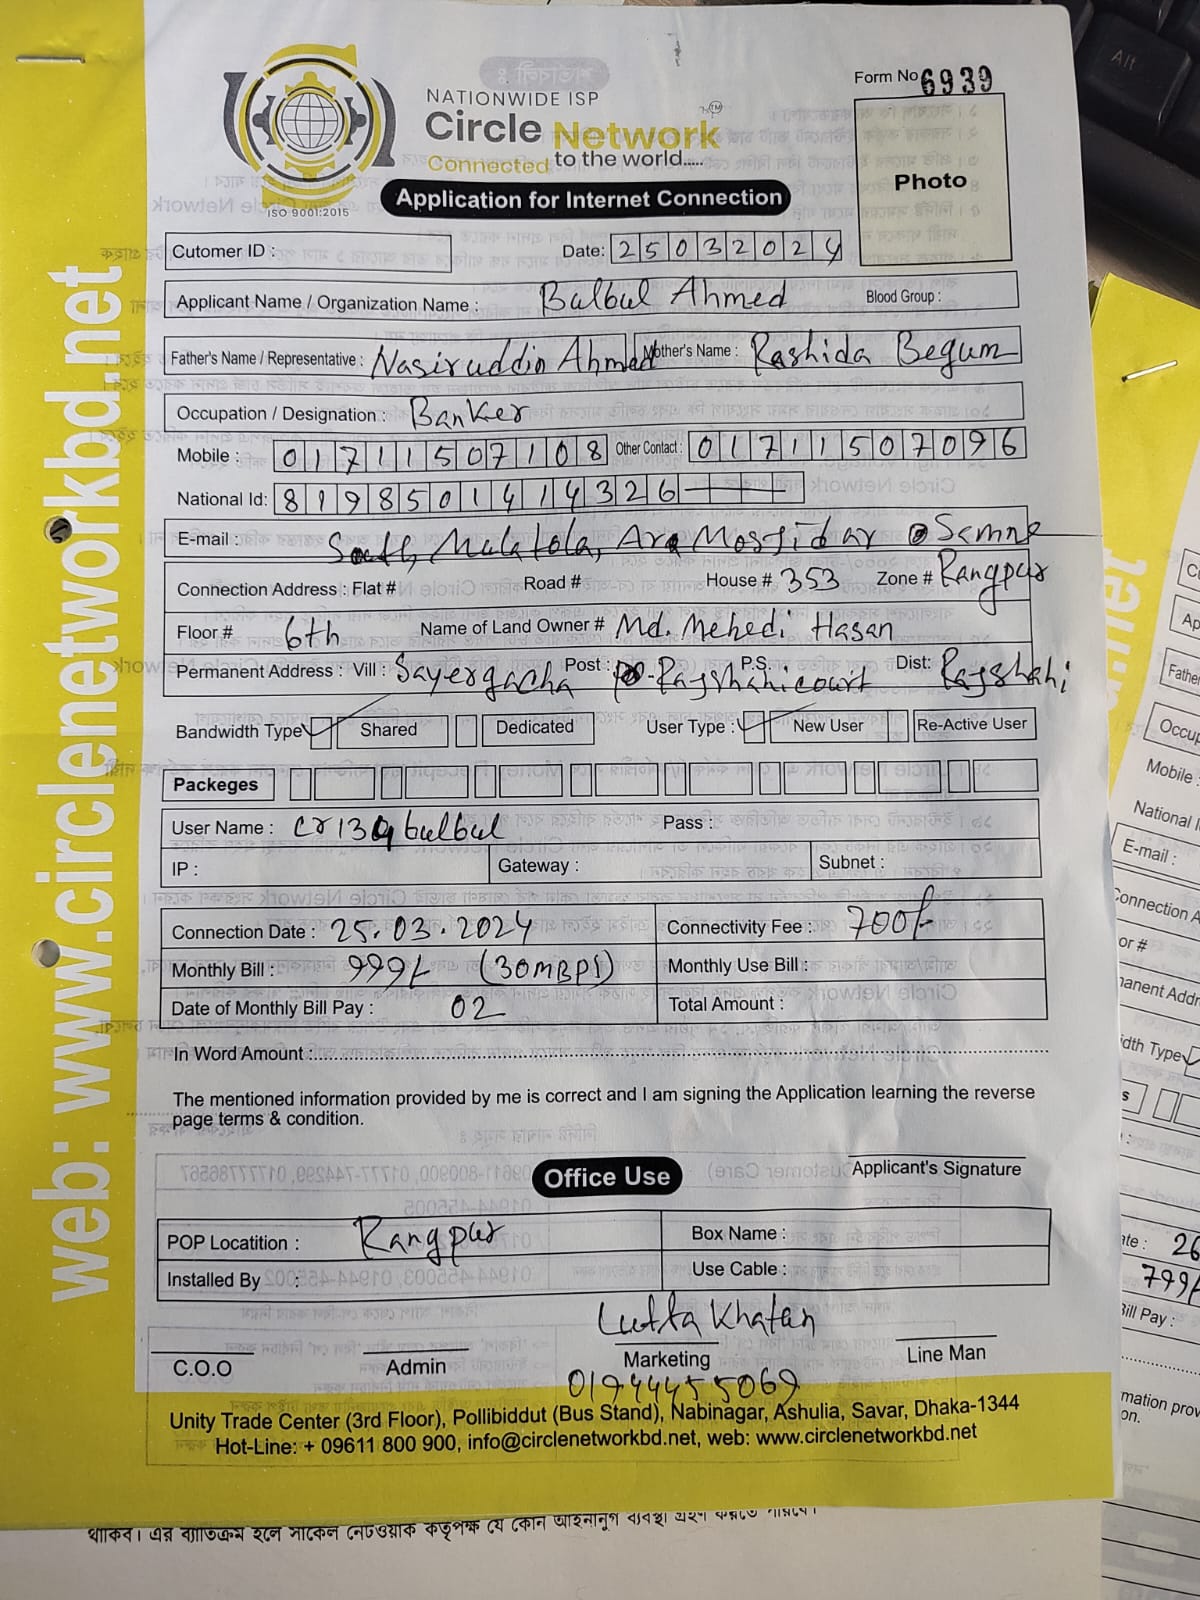 Form No 6939
NATIONWIDE ISP
Circle Network
TM
Connected to the world.....
ISO 9001:2015
Application for Internet Connection
Photo
Cutomer ID :
Date: 25032024
Applicant Name / Organization Name : Bulbul Ahmed Blood Group :
Father's Name / Representative : Nasiruddin Ahmed Mother's Name : Rashida Begum
Occupation / Designation : Banker
Mobile : 01711507108 Other Contact : 01711507096
National Id: 8198501414326
E-mail : South Mulatola, Ara Mosjidar Samne
Connection Address : Flat # Road # House # 353 Zone # Rangpur
Floor # 6th Name of Land Owner # Md. Mehedi Hasan
Permanent Address : Vill : Sayergacha Post : Rajshahi court P.S. Dist: Rajshahi
Bandwidth Type Shared Dedicated User Type : New User Re-Active User
Packeges
User Name : cr139bulbul Pass :
IP : Gateway : Subnet :
Connection Date : 25.03.2024 Connectivity Fee : 700/-
Monthly Bill : 999/- (30MBPS) Monthly Use Bill :
Date of Monthly Bill Pay : 02 Total Amount :
In Word Amount :
The mentioned information provided by me is correct and I am signing the Application learning the reverse
page terms & condition.
Office Use
Applicant's Signature
POP Locatition : Rangpur Box Name :
Installed By : Use Cable :
Lutfa Khatun
C.O.O Admin Marketing Line Man
01944455069
Unity Trade Center (3rd Floor), Pollibiddut (Bus Stand), Nabinagar, Ashulia, Savar, Dhaka-1344
Hot-Line: + 09611 800 900, info@circlenetworkbd.net, web: www.circlenetworkbd.net
web: www.circlenetworkbd.net
থাকিব। এর ব্যতিক্রম হলে সার্কেল নেটওয়ার্ক কতৃপক্ষ যে কোন আইনানুগ ব্যবস্থা গ্রহণ করতে পারবে।
Alt
Father
Occup
Mobile :
National I
E-mail :
onnection A
or #
nanent Addr
idth Type
ate : 26
799/-
Bill Pay :
mation prov
on.